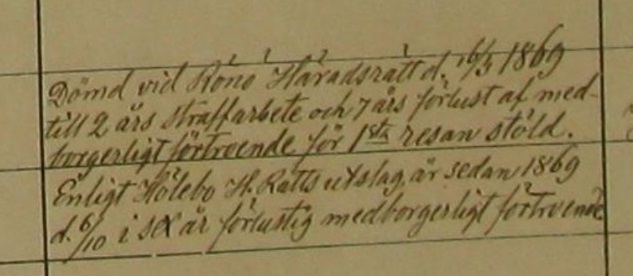 Dömd vid Rönö Häradsrätt d. 16/3 1869
till 2 års straffarbete och 7 års förlust af med-
borgerligt förtroende för 1sta resan stöld.
Enligt Hölebo H. Rätts utslag, är sedan 1869
d. 6/10 i sex år förlustig medborgerligt förtroende